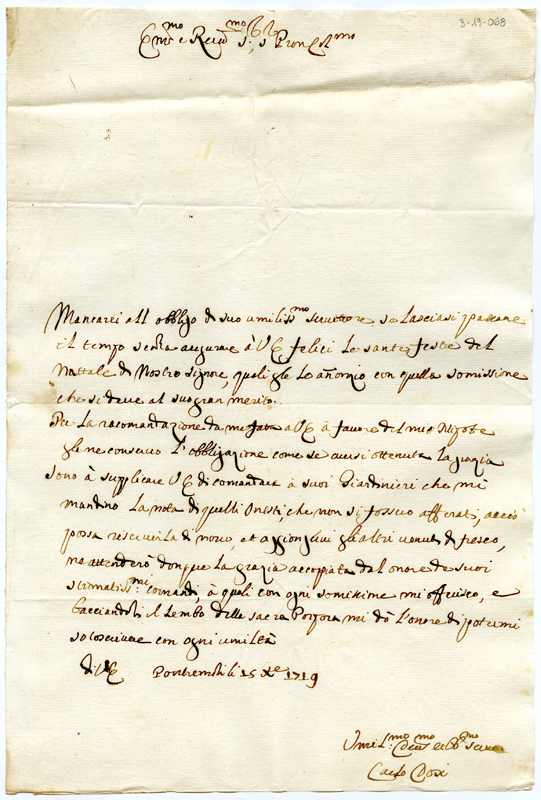 3-19-068
Em.mo e Reu.mo S.r, s Pron Col.mo
Mancarei all obbligo di suo umiliss.mo seruittore se lasciasi passare
il tempo senza augurare à V E felici le sante feste del
Nattale di Nostro Signore, quali gle lo anontio con quella somissione
che si deue al suo gran merito.
Per la racomandazione da me fata a V E à fauore del mio Nipote
gle ne conseruo l'obbligazione come se auessi ottenuta la grazia
sono à supplicare V E di comandare à suoi Giardinieri che mi
mandino la nota di quelli Onesti, che non si fossero afferati, acciò
possa riscuirla di nouo, et aggiongerui gli altri uenuti di fresco,
ne attenderò donque la grazia accopiata dal onore de suoi
stimatiss.mi comandi à quali con ogni somissione mi offerisco, e
bacciandoli il Lembo della sacra Porpora mi dò l'onore di potermi
sotoscriuere con ogni umiltà
di V E Pontremoli li 15 X.re 1719
Umil.mo Deu.mo et Ob.mo Seru.re
Carlo Dosi